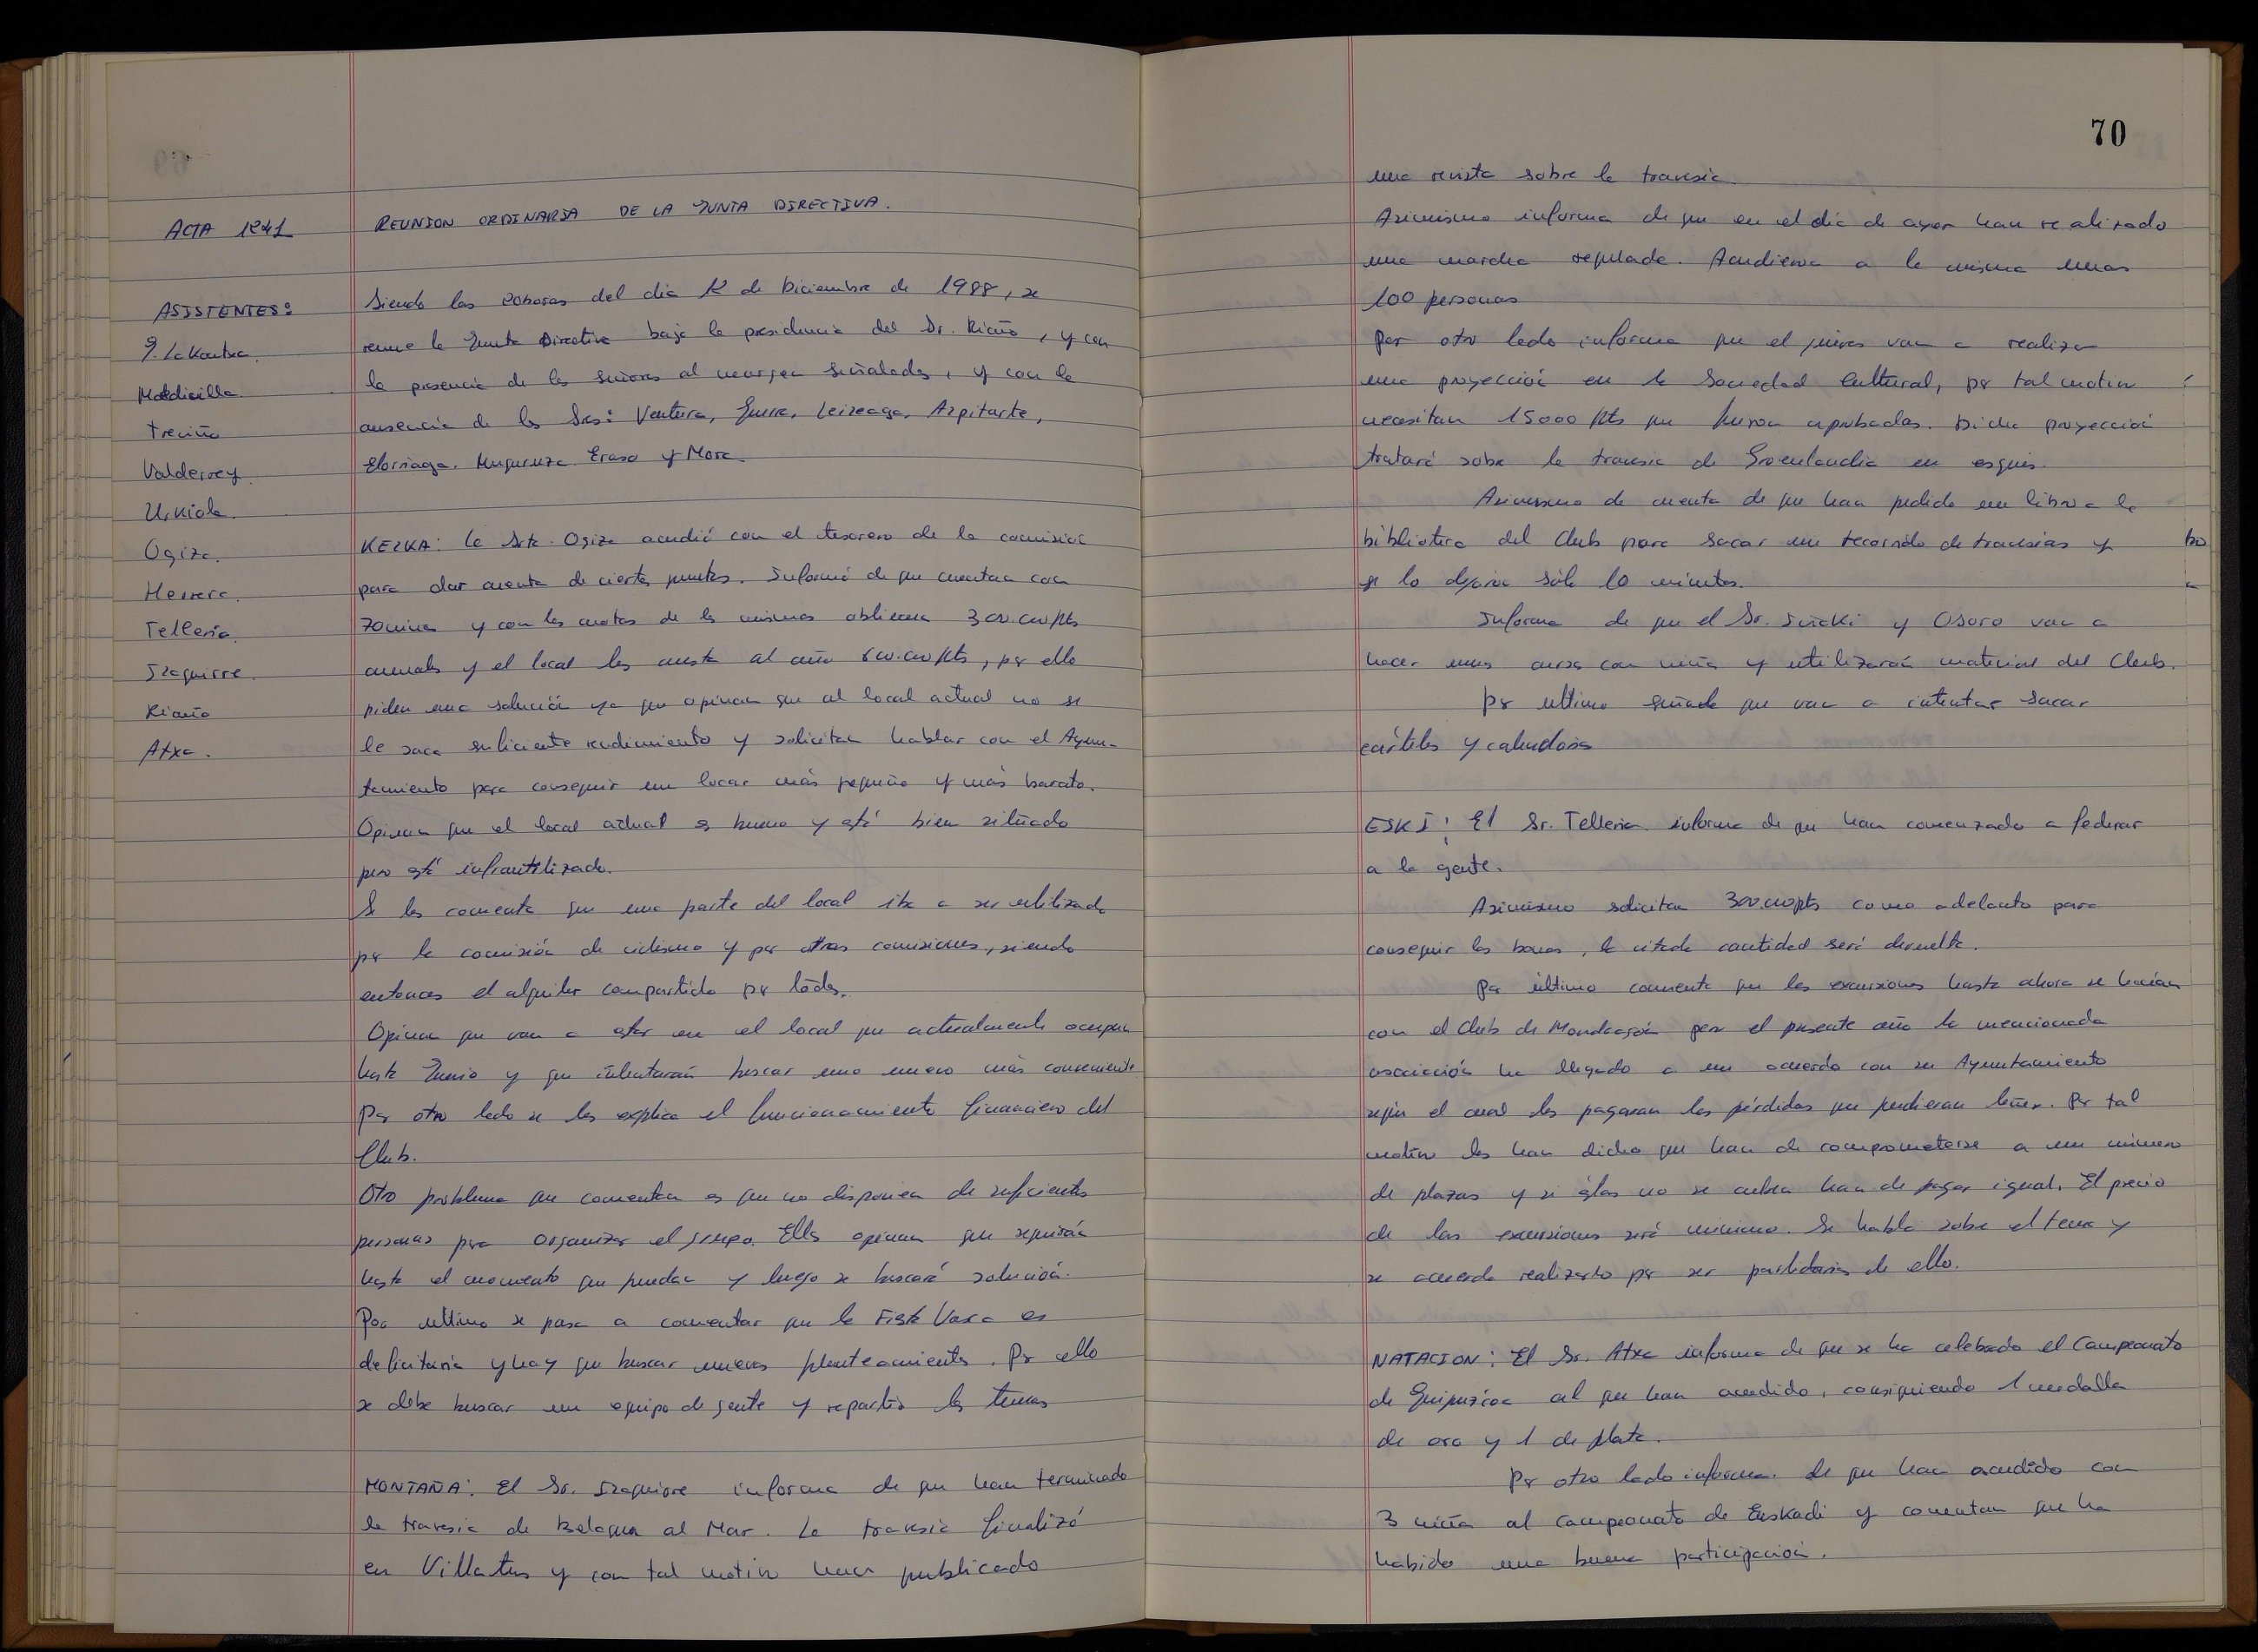 ACTA 1241
REUNION ORDINARIA DE LA JUNTA DIRECTIVA.
ASISTENTES:
Maldivilla
Treviño
Valderrey
Urkiola
Ogiza
Herrera
Telleria
Izaguirre
Riaño
Atxa.
Siendo las 20horas del dia 12 de Diciembre de 1988, se
reune la Junta Directiva bajo la presidencia del Sr. Riaño, y con
la presencia de los señores al margen señalados, y con la
ausencia de los Srs: Ventura, Leizeaga, Azpitarte,
Elorriaga. Muguruza. Eraso y Mora.
KEZKA: La Srta. Ogiza acudió con el tesorero de la comisión
para dar cuenta de ciertos puntos. Informó de que cuentan con
70 niños y con las cuotas de los mismos obtienen 300.000 pts
anuales y el local les cuesta al año 600.000 pts, por ello
piden una solución ya que opinan que al local actual no se
le saca suficiente rendimiento y solicitan hablar con el Ayun-
tamiento para conseguir un locar más pequeño y más barato.
Opinan que el local actual es bueno y está bien situado
pero está infrautilizado.
Se les comenta que una parte del local iba a ser utilizado
por la comisión de ciclismo y por otras comisiones, siendo
entonces el alquiler compartido por todos.
Opinan que van a estar en el local que actualmente ocupan
hasta Junio y que intentarán buscar uno nuevo más conveniente
Por otro lado se les explica el funcionamiento financiero del
Club.
Otro problema que comentan es que no disponen de suficientes
personas para organizar el grupo. Ellos opinan que seguirán
hasta el momento que puedan y luego se buscará solución.
Por ultimo se pasa a comentar que la Fista Vasca es
deficitaria y hay que buscar nuevos planteamientos. Por ello
se debe buscar un equipo de gente y repartir los temas
MONTAÑA: El Sr. Izaguirre informa de que han terminado
la travesia de Belagua al Mar. La travesia finalizó
en Villatus y con tal motivo han publicado
70
una revista sobre la travesia.
Asimismo informa de que en el dia de ayer han realizado
una marcha regulada. Acudieron a la misma unas
100 personas
Por otro lado informa que el jueves van a realizar
una proyección en la Sociedad Cultural, por tal motivo
necesitan 15000 pts que fueron aprobadas. Dicha proyección
tratará sobre la travesia de Groenlandia en esquis.
Asimismo da cuenta de que han pedido un libro a la
biblioteca del Club para sacar un recorrido de travesias y
se lo dejaron sólo 10 minutos.
Informa de que el Sr. Iñaki y Osoro van a
hacer unos cursos con niños y utilizarán material del Club.
Por ultimo señala que van a intentar sacar
carteles y calendarios
ESKI: El Sr. Telleria informa de que han comenzado a federar
a la gente.
Asimismo solicitan 300.000pts como adelanto para
conseguir los bonos, la citada cantidad será devuelta.
Por último comenta que las excursiones hasta ahora se hacian
con el Club de Mondragón pero el presente año la mencionada
asociación ha llegado a un acuerdo con su Ayuntamiento
según el cual les pagaran las pérdidas que pudieran tener. Por tal
motivo les han dicho que han de comprometerse a un número
de plazas y si éstas no se cubren han de pagar igual. El precio
de las excursiones será mínimo. Se habla sobre el tema y
se acuerda realizarlo por ser partidarios de ello.
NATACION: El Sr. Atxa informa de que se ha celebrado el Campeonato
de Guipuzcoa al que han acudido, consiguiendo 1 medalla
de oro y 1 de plata.
Por otro lado informa. de que han acudido con
3 niños al Campeonato de Euskadi y comentan que ha
habido una buena participación.